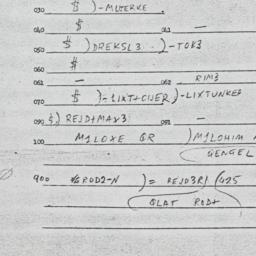 030 $ )-MLTERKE.
040 $ 041 —
050 $ )DREKSL3 . )-TOK3
060 #
061 — 062 RIM3
070 $ )-LIXT+CIJER)-LIXTUNKER
090 $) REJD+MAX3 091 —
100 M1LOXE QR )M1LOHIM
GENGEL
900 )= REJD3R) (425
QLAT ROD+